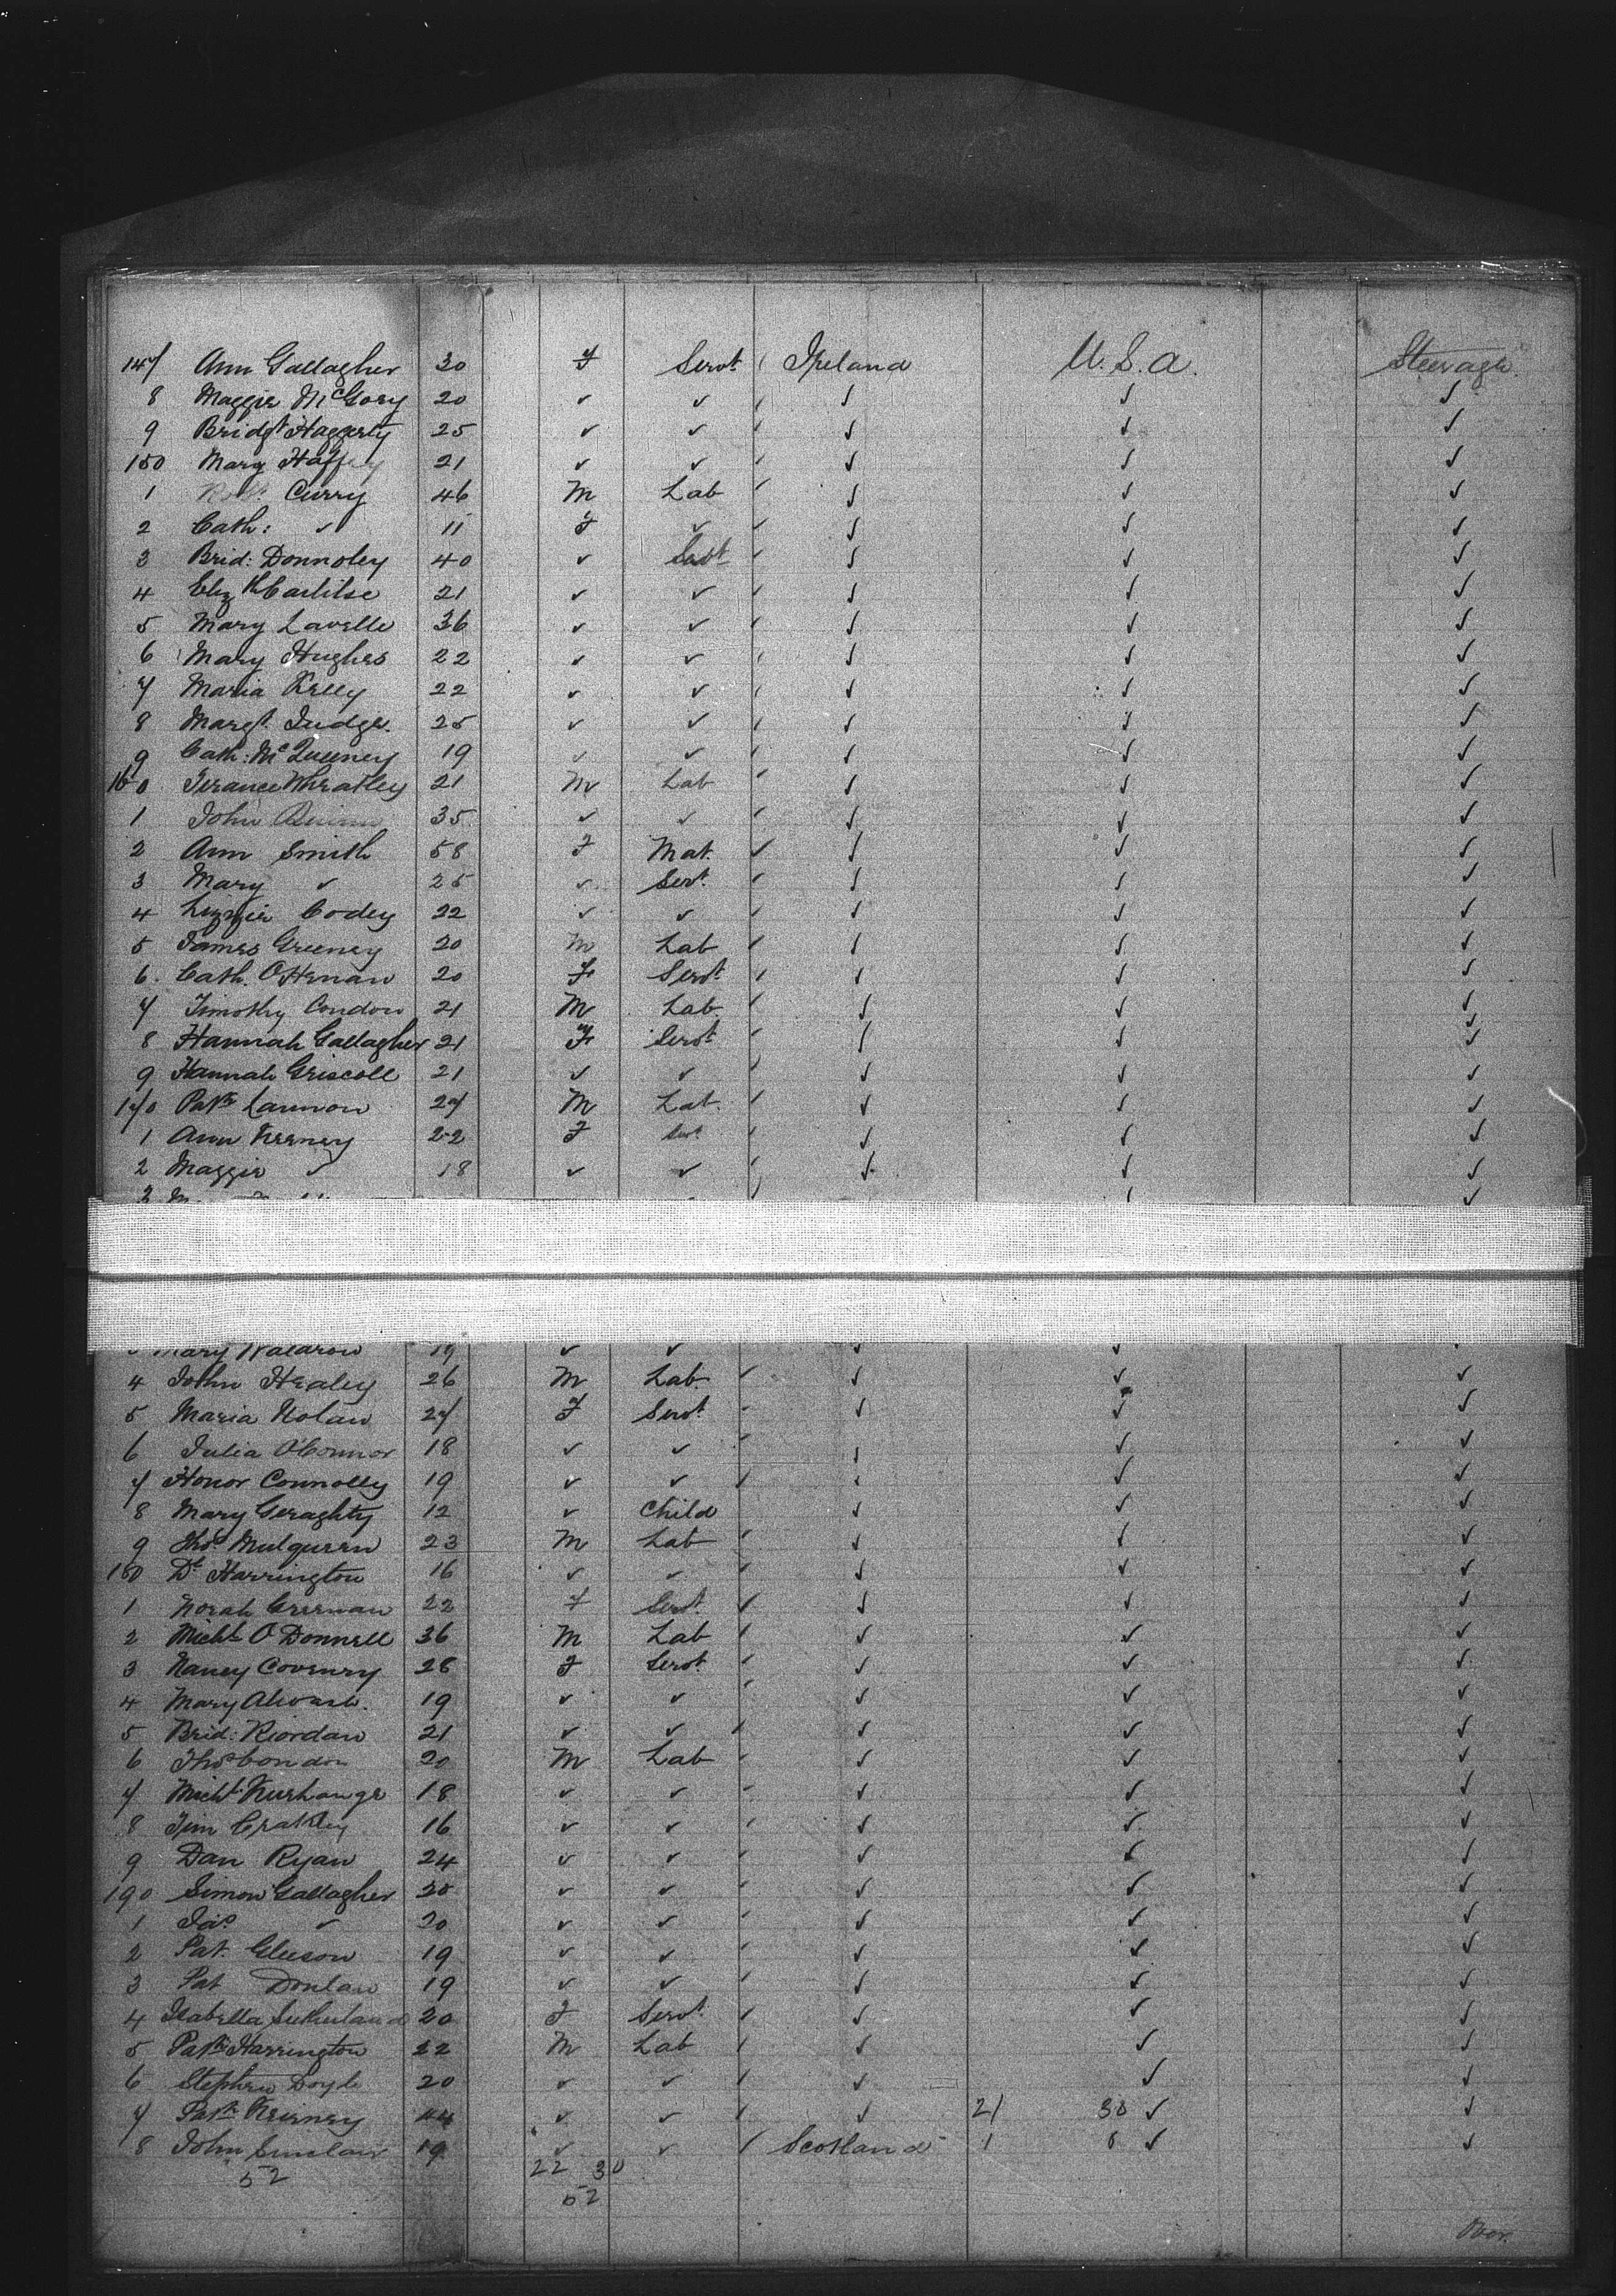 147 Ann Gallagher 30 F Servt Ireland U.S.A. Steerage.
8 Maggie McGory 20 ✓ ✓ ✓ ✓ ✓
9 Bridgt Hagerty 25 ✓ ✓ ✓ ✓ ✓
150 Mary 21 ✓ ✓ ✓ ✓ ✓
1 Curry 46 M Lab ✓ ✓ ✓
2 Cath: ✓ 11 F ✓ ✓ ✓ ✓
3 Brid: Donnoley 40 ✓ Servt ✓ ✓ ✓
4 Elizth Carlilse 21 ✓ ✓ ✓ ✓ ✓
5 Mary Lavelle 36 ✓ ✓ ✓ ✓ ✓
6 Mary Hughes 22 ✓ ✓ ✓ ✓ ✓
7 Maria Kelly 22 ✓ ✓ ✓ ✓ ✓
8 Margt Judge. 25 ✓ ✓ ✓ ✓ ✓
9 Cath: 19 ✓ ✓ ✓ ✓ ✓
160 Terance Wheatley 21 M Lab ✓ ✓ ✓
1 John 35 ✓ ✓ ✓ ✓ ✓
2 Ann Smith 58 F Mat. ✓ ✓ ✓
3 Mary ✓ 25 ✓ Servt. ✓ ✓ ✓
4 Lizzie Codey 22 ✓ ✓ ✓ ✓ ✓
5 James Greeney 20 M Lab ✓ ✓ ✓
6. Cath. O'Henan 20 F Servt ✓ ✓ ✓
7 Timothy Condon 21 M Lab. ✓ ✓ ✓
8 Hannah Gallagher 21 F Servt ✓ ✓ ✓
9 Hannah Griscoll 21 ✓ ✓ ✓ ✓ ✓
170 Patk Lannon 27 M Lab. ✓ ✓ ✓
1 Ann Keerney 22 F Servt ✓ ✓ ✓
2 Maggie ✓ 18 ✓ ✓ ✓ ✓ ✓
Mary Waldrow 19 ✓ ✓ ✓ ✓ ✓
4 John Healey 26 M Lab. ✓ ✓ ✓
5 Maria Nolan 27 F Servt ✓ ✓ ✓
6 Julia O'Connor 18 ✓ ✓ ✓ ✓ ✓
7 Honor Connolly 19 ✓ ✓ ✓ ✓ ✓
8 Mary Geraghty 12 ✓ Child ✓ ✓ ✓
9 Thos Mulqueen 23 M Lab ✓ ✓ ✓
180 Dl Harrington 16 ✓ ✓ ✓ ✓ ✓
1 Norah 22 F Servt. ✓ ✓ ✓
2 Michl O'Donnell 36 M Lab ✓ ✓ ✓
3 Nancy Covenry 28 F Servt. ✓ ✓ ✓
4 Mary 19 ✓ ✓ ✓ ✓ ✓
5 Brid: Riordan 21 ✓ ✓ ✓ ✓ ✓
6 Thos Condon 20 M Lab ✓ ✓ ✓
7 Michl 18 ✓ ✓ ✓ ✓ ✓
8 Tim 16 ✓ ✓ ✓ ✓ ✓
9 Dan Ryan 24 ✓ ✓ ✓ ✓ ✓
190 Simon Gallagher 20 ✓ ✓ ✓ ✓ ✓
1 Jas ✓ 20 ✓ ✓ ✓ ✓ ✓
2 Pat. Gleeson 19 ✓ ✓ ✓ ✓ ✓
3 Pat Donlan 19 ✓ ✓ ✓ ✓ ✓
4 Isabella Sutherland 20 F Servt. ✓ ✓ ✓
5 Patk Harrington 22 M Lab ✓ ✓ ✓
6 Stephen Doyle 20 ✓ ✓ ✓ ✓ ✓
7 Patk Keirney 44 ✓ ✓ ✓ 21 30 ✓ ✓
8 John Sinclair 19 ✓ ✓ Scotland 1 ✓ ✓
52 22 30
52